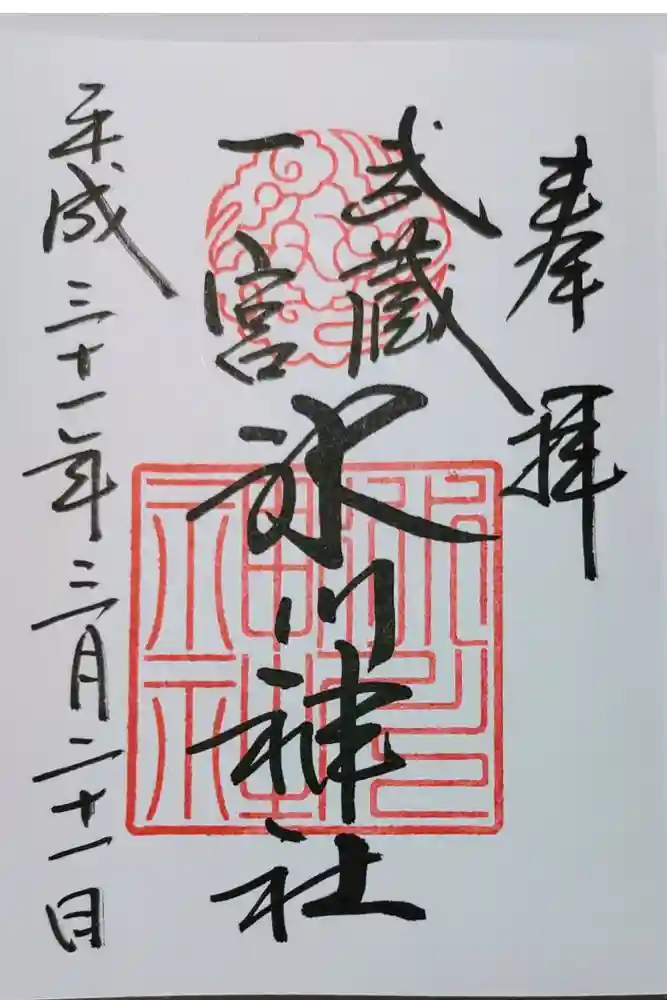 奉拝
武蔵
一宮
氷川神社
平成三十一年三月二十一日
氷川
神社